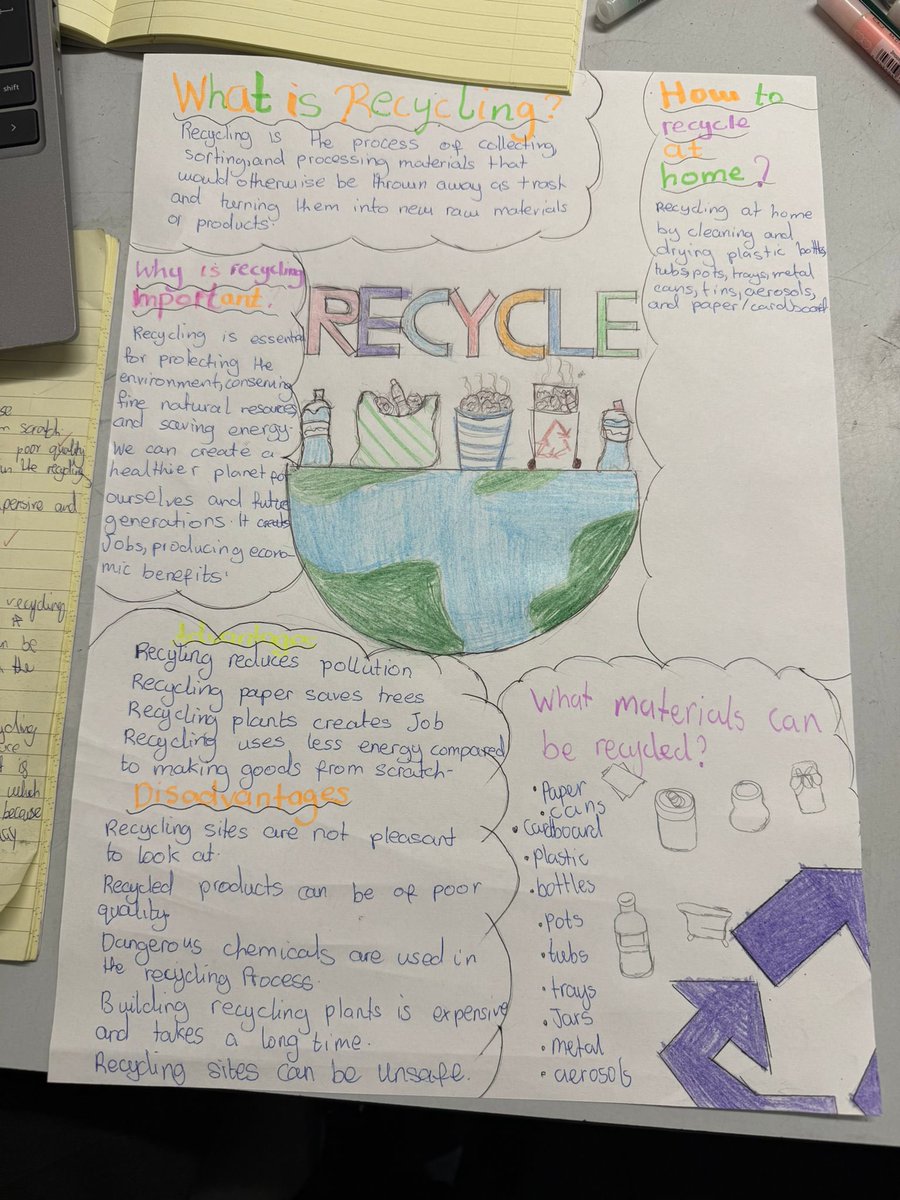 What is Recycling?
Recycling is the process of collecting,
sorting, and processing materials that
would otherwise be thrown away as trash
and turning them into new raw materials
or products.
How to
recycle
at
home?
Recycling at home
by cleaning and
drying plastic bottles,
tubs, pots, trays, metal
cans, tins, aerosols,
and paper/cardboard
Why is recycling
important.
Recycling is essential
for protecting the
environment, conserving
fine natural resources
and saving energy.
We can create a
healthier planet for
ourselves and future
generations. It creats
Jobs, producing econo-
mic benefits.
RECYCLE
Advantages
Recycling reduces pollution
Recycling paper saves trees
Recycling plants creates Job
Recycling uses less energy compared
to making goods from scratch-
Disadvantages
Recycling sites are not pleasant
to look at.
Recycled products can be of poor
quality.
Dangerous chemicals are used in
the recycling Process.
Building recycling plants is expensive
and takes a long time.
Recycling sites can be unsafe.
What materials can
be recycled?
• Paper
• cans
• Cardboard
• plastic
• bottles
• pots
• tubs
• trays
• Jars
• metal
• aerosols
shift
scratch
poor quality
the recycling
and
recycling
be
the
which
because